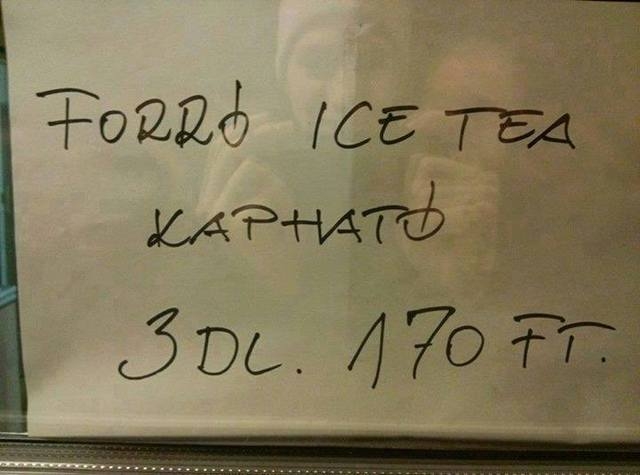 FORRÓ ICE TEA
KAPHATÓ
3DL. 170 FT.